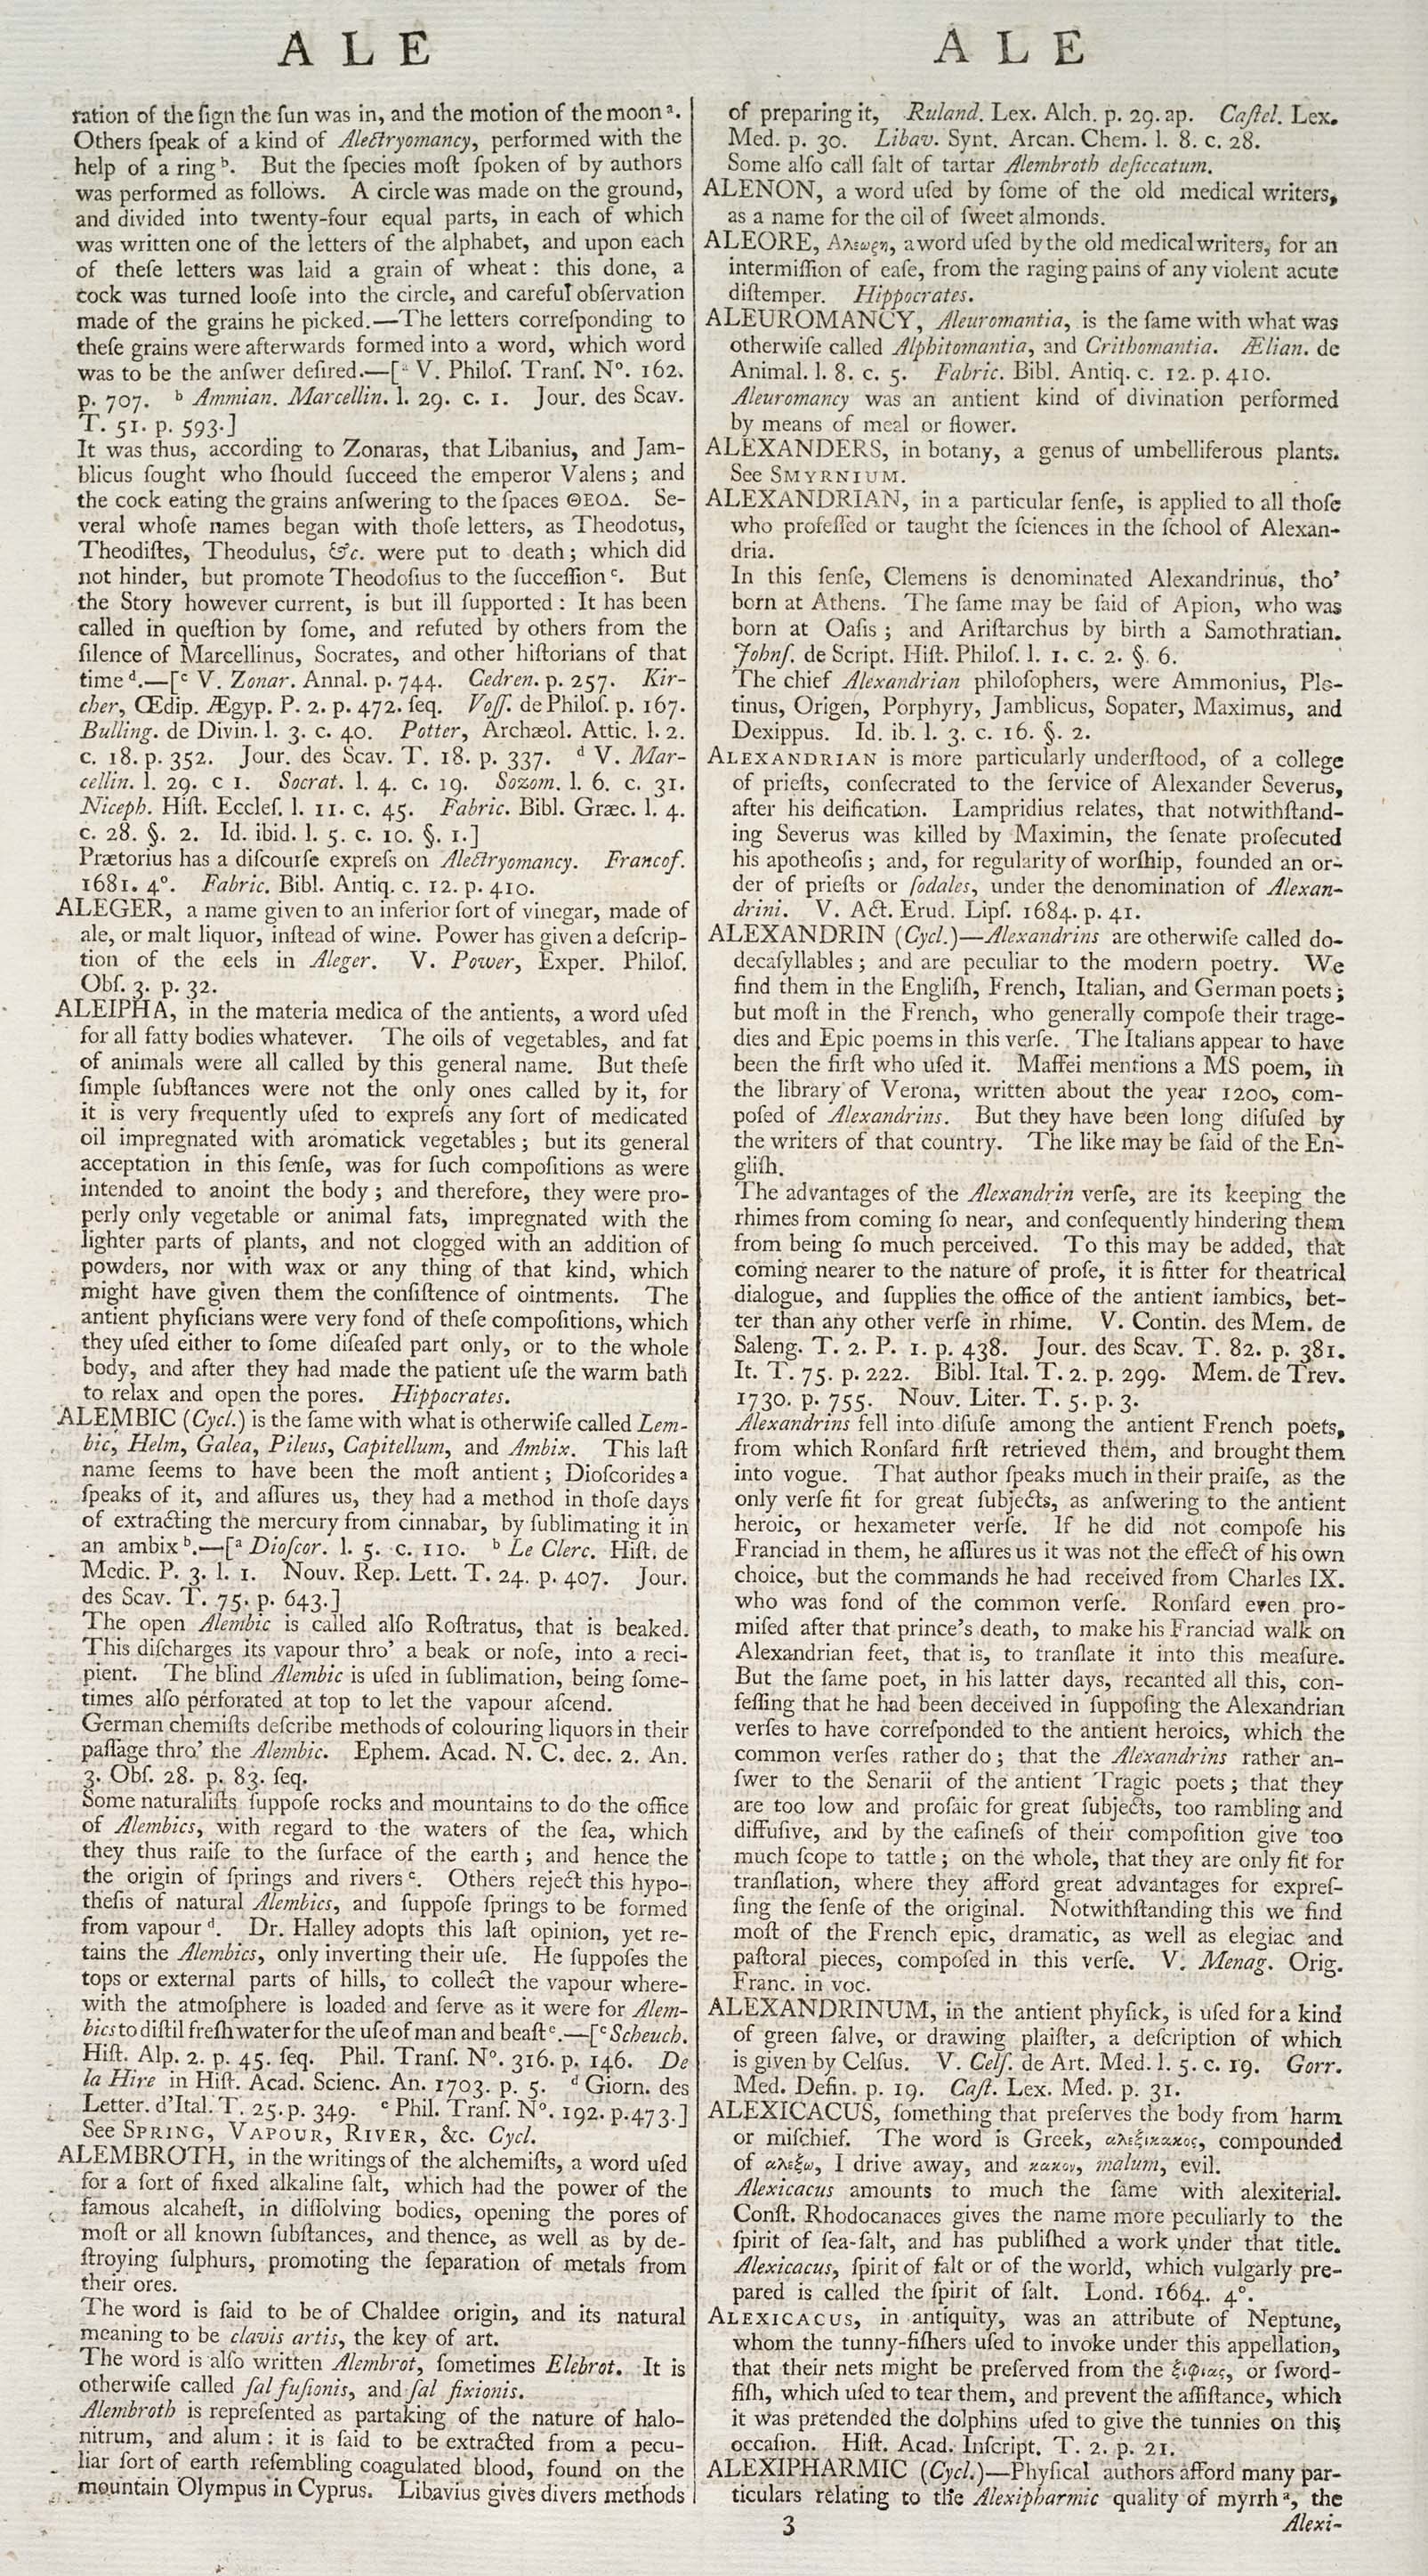 A L E
ration of the ſign the ſun was in, and the motion of the moon ª.
Others ſpeak of a kind of Alectryomancy, performed with the
help of a ring ᵇ. But the ſpecies moſt ſpoken of by authors
was performed as follows. A circle was made on the ground,
and divided into twenty-four equal parts, in each of which
was written one of the letters of the alphabet, and upon each
of theſe letters was laid a grain of wheat: this done, a
cock was turned looſe into the circle, and careful obſervation
made of the grains he picked.—The letters correſponding to
theſe grains were afterwards formed into a word, which word
was to be the anſwer deſired.—[ª V. Philoſ. Tranſ. Nº. 162.
p. 707. ᵇ Ammian. Marcellin. l. 29. c. 1. Jour. des Scav.
T. 51. p. 593.]
It was thus, according to Zonaras, that Libanius, and Jam-
blicus ſought who ſhould ſucceed the emperor Valens; and
the cock eating the grains anſwering to the ſpaces ΘΕΟΔ. Se-
veral whoſe names began with thoſe letters, as Theodotus,
Theodiſtes, Theodulus, &c. were put to death; which did
not hinder, but promote Theodoſius to the ſucceſſion ᶜ. But
the Story however current, is but ill ſupported: It has been
called in queſtion by ſome, and refuted by others from the
ſilence of Marcellinus, Socrates, and other hiſtorians of that
time ᵈ.—[ᶜ V. Zonar. Annal. p. 744. Cedren. p. 257. Kir-
cher, Œdip. Ægyp. P. 2. p. 472. ſeq. Voſſ. de Philoſ. p. 167.
Bulling. de Divin. l. 3. c. 40. Potter, Archæol. Attic. l. 2.
c. 18. p. 352. Jour. des Scav. T. 18. p. 337. ᵈ V. Mar-
cellin. l. 29. c 1. Socrat. l. 4. c. 19. Sozom. l. 6. c. 31.
Niceph. Hiſt. Eccleſ. l. 11. c. 45. Fabric. Bibl. Græc. l. 4.
c. 28. §. 2. Id. ibid. l. 5. c. 10. §. 1.]
Prætorius has a diſcourſe expreſs on Alectryomancy. Francof.
1681. 4º. Fabric. Bibl. Antiq. c. 12. p. 410.
ALEGER, a name given to an inferior ſort of vinegar, made of
ale, or malt liquor, inſtead of wine. Power has given a deſcrip-
tion of the eels in Aleger. V. Power, Exper. Philoſ.
Obſ. 3. p. 32.
ALEIPHA, in the materia medica of the antients, a word uſed
for all fatty bodies whatever. The oils of vegetables, and fat
of animals were all called by this general name. But theſe
ſimple ſubſtances were not the only ones called by it, for
it is very frequently uſed to expreſs any ſort of medicated
oil impregnated with aromatick vegetables; but its general
acceptation in this ſenſe, was for ſuch compoſitions as were
intended to anoint the body; and therefore, they were pro-
perly only vegetable or animal fats, impregnated with the
lighter parts of plants, and not clogged with an addition of
powders, nor with wax or any thing of that kind, which
might have given them the conſiſtence of ointments. The
antient phyſicians were very fond of theſe compoſitions, which
they uſed either to ſome diſeaſed part only, or to the whole
body, and after they had made the patient uſe the warm bath
to relax and open the pores. Hippocrates.
ALEMBIC (Cycl.) is the ſame with what is otherwiſe called Lem-
bic, Helm, Galea, Pileus, Capitellum, and Ambix. This laſt
name ſeems to have been the moſt antient; Dioſcorides ª
ſpeaks of it, and aſſures us, they had a method in thoſe days
of extracting the mercury from cinnabar, by ſublimating it in
an ambix ᵇ.—[ª Dioſcor. l. 5. c. 110. ᵇ Le Clerc. Hiſt. de
Medic. P. 3. l. 1. Nouv. Rep. Lett. T. 24. p. 407. Jour.
des Scav. T. 75. p. 643.]
The open Alembic is called alſo Roſtratus, that is beaked.
This diſcharges its vapour thro' a beak or noſe, into a reci-
pient. The blind Alembic is uſed in ſublimation, being ſome-
times alſo perforated at top to let the vapour aſcend.
German chemiſts deſcribe methods of colouring liquors in their
paſſage thro' the Alembic. Ephem. Acad. N. C. dec. 2. An.
3. Obſ. 28. p. 83. ſeq.
Some naturaliſts ſuppoſe rocks and mountains to do the office
of Alembics, with regard to the waters of the ſea, which
they thus raiſe to the ſurface of the earth; and hence the
the origin of ſprings and rivers ᶜ. Others reject this hypo-
theſis of natural Alembics, and ſuppoſe ſprings to be formed
from vapour ᵈ. Dr. Halley adopts this laſt opinion, yet re-
tains the Alembics, only inverting their uſe. He ſuppoſes the
tops or external parts of hills, to collect the vapour where-
with the atmoſphere is loaded and ſerve as it were for Alem-
bics to diſtil freſh water for the uſe of man and beaſt ᵉ.—[ᶜ Scheuch.
Hiſt. Alp. 2. p. 45. ſeq. Phil. Tranſ. Nº. 316. p. 146. De
la Hire in Hiſt. Acad. Scienc. An. 1703. p. 5. ᵈ Giorn. des
Letter. d'Ital. T. 25. p. 349. ᵉ Phil. Tranſ. Nº. 192. p. 473.]
See SPRING, VAPOUR, RIVER, &c. Cycl.
ALEMBROTH, in the writings of the alchemiſts, a word uſed
for a ſort of fixed alkaline ſalt, which had the power of the
famous alcaheſt, in diſſolving bodies, opening the pores of
moſt or all known ſubſtances, and thence, as well as by de-
ſtroying ſulphurs, promoting the ſeparation of metals from
their ores.
The word is ſaid to be of Chaldee origin, and its natural
meaning to be clavis artis, the key of art.
The word is alſo written Alembrot, ſometimes Elebrot. It is
otherwiſe called ſal fuſionis, and ſal fixionis.
Alembroth is repreſented as partaking of the nature of halo-
nitrum, and alum: it is ſaid to be extracted from a pecu-
liar ſort of earth reſembling coagulated blood, found on the
mountain Olympus in Cyprus. Libavius gives divers methods
A L E
of preparing it, Ruland. Lex. Alch. p. 29. ap. Caſtel. Lex.
Med. p. 30. Libav. Synt. Arcan. Chem. l. 8. c. 28.
Some alſo call ſalt of tartar Alembroth deſiccatum.
ALENON, a word uſed by ſome of the old medical writers,
as a name for the oil of ſweet almonds.
ALEORE, Αλεωρη, a word uſed by the old medical writers, for an
intermiſſion of eaſe, from the raging pains of any violent acute
diſtemper. Hippocrates.
ALEUROMANCY, Aleuromantia, is the ſame with what was
otherwiſe called Alphitomantia, and Crithomantia. Ælian. de
Animal. l. 8. c. 5. Fabric. Bibl. Antiq. c. 12. p. 410.
Aleuromancy was an antient kind of divination performed
by means of meal or flower.
ALEXANDERS, in botany, a genus of umbelliferous plants.
See SMYRNIUM.
ALEXANDRIAN, in a particular ſenſe, is applied to all thoſe
who profeſſed or taught the ſciences in the ſchool of Alexan-
dria.
In this ſenſe, Clemens is denominated Alexandrinus, tho'
born at Athens. The ſame may be ſaid of Apion, who was
born at Oaſis; and Ariſtarchus by birth a Samothratian.
Johnſ. de Script. Hiſt. Philoſ. l. 1. c. 2. §. 6.
The chief Alexandrian philoſophers, were Ammonius, Plo-
tinus, Origen, Porphyry, Jamblicus, Sopater, Maximus, and
Dexippus. Id. ib. l. 3. c. 16. §. 2.
ALEXANDRIAN is more particularly underſtood, of a college
of prieſts, conſecrated to the ſervice of Alexander Severus,
after his deification. Lampridius relates, that notwithſtand-
ing Severus was killed by Maximin, the ſenate proſecuted
his apotheoſis; and, for regularity of worſhip, founded an or-
der of prieſts or ſodales, under the denomination of Alexan-
drini. V. Act. Erud. Lipſ. 1684. p. 41.
ALEXANDRIN (Cycl.)—Alexandrins are otherwiſe called do-
decaſyllables; and are peculiar to the modern poetry. We
find them in the Engliſh, French, Italian, and German poets;
but moſt in the French, who generally compoſe their trage-
dies and Epic poems in this verſe. The Italians appear to have
been the firſt who uſed it. Maffei mentions a MS poem, in
the library of Verona, written about the year 1200, com-
poſed of Alexandrins. But they have been long diſuſed by
the writers of that country. The like may be ſaid of the En-
gliſh.
The advantages of the Alexandrin verſe, are its keeping the
rhimes from coming ſo near, and conſequently hindering them
from being ſo much perceived. To this may be added, that
coming nearer to the nature of proſe, it is fitter for theatrical
dialogue, and ſupplies the office of the antient iambics, bet-
ter than any other verſe in rhime. V. Contin. des Mem. de
Saleng. T. 2. P. 1. p. 438. Jour. des Scav. T. 82. p. 381.
It. T. 75. p. 222. Bibl. Ital. T. 2. p. 299. Mem. de Trev.
1730. p. 755. Nouv. Liter. T. 5. p. 3.
Alexandrins fell into diſuſe among the antient French poets,
from which Ronſard firſt retrieved them, and brought them
into vogue. That author ſpeaks much in their praiſe, as the
only verſe fit for great ſubjects, as anſwering to the antient
heroic, or hexameter verſe. If he did not compoſe his
Franciad in them, he aſſures us it was not the effect of his own
choice, but the commands he had received from Charles IX.
who was fond of the common verſe. Ronſard even pro-
miſed after that prince's death, to make his Franciad walk on
Alexandrian feet, that is, to tranſlate it into this meaſure.
But the ſame poet, in his latter days, recanted all this, con-
feſſing that he had been deceived in ſuppoſing the Alexandrian
verſes to have correſponded to the antient heroics, which the
common verſes rather do; that the Alexandrins rather an-
ſwer to the Senarii of the antient Tragic poets; that they
are too low and proſaic for great ſubjects, too rambling and
diffuſive, and by the eaſineſs of their compoſition give too
much ſcope to tattle; on the whole, that they are only fit for
tranſlation, where they afford great advantages for expreſ-
ſing the ſenſe of the original. Notwithſtanding this we find
moſt of the French epic, dramatic, as well as elegiac and
paſtoral pieces, compoſed in this verſe. V. Menag. Orig.
Franc. in voc.
ALEXANDRINUM, in the antient phyſick, is uſed for a kind
of green ſalve, or drawing plaiſter, a deſcription of which
is given by Celſus. V. Celſ. de Art. Med. l. 5. c. 19. Gorr.
Med. Defin. p. 19. Caſt. Lex. Med. p. 31.
ALEXICACUS, ſomething that preſerves the body from harm
or miſchief. The word is Greek, αλεξικακος, compounded
of αλεξω, I drive away, and κακον, malum, evil.
Alexicacus amounts to much the ſame with alexiterial.
Conſt. Rhodocanaces gives the name more peculiarly to the
ſpirit of ſea-ſalt, and has publiſhed a work under that title.
Alexicacus, ſpirit of ſalt or of the world, which vulgarly pre-
pared is called the ſpirit of ſalt. Lond. 1664. 4º.
ALEXICACUS, in antiquity, was an attribute of Neptune,
whom the tunny-fiſhers uſed to invoke under this appellation,
that their nets might be preſerved from the ξιφιας, or ſword-
fiſh, which uſed to tear them, and prevent the aſſiſtance, which
it was pretended the dolphins uſed to give the tunnies on this
occaſion. Hiſt. Acad. Inſcript. T. 2. p. 21.
ALEXIPHARMIC (Cycl.)—Phyſical authors afford many par-
ticulars relating to the Alexipharmic quality of myrrh ª, the
3
Alexi-